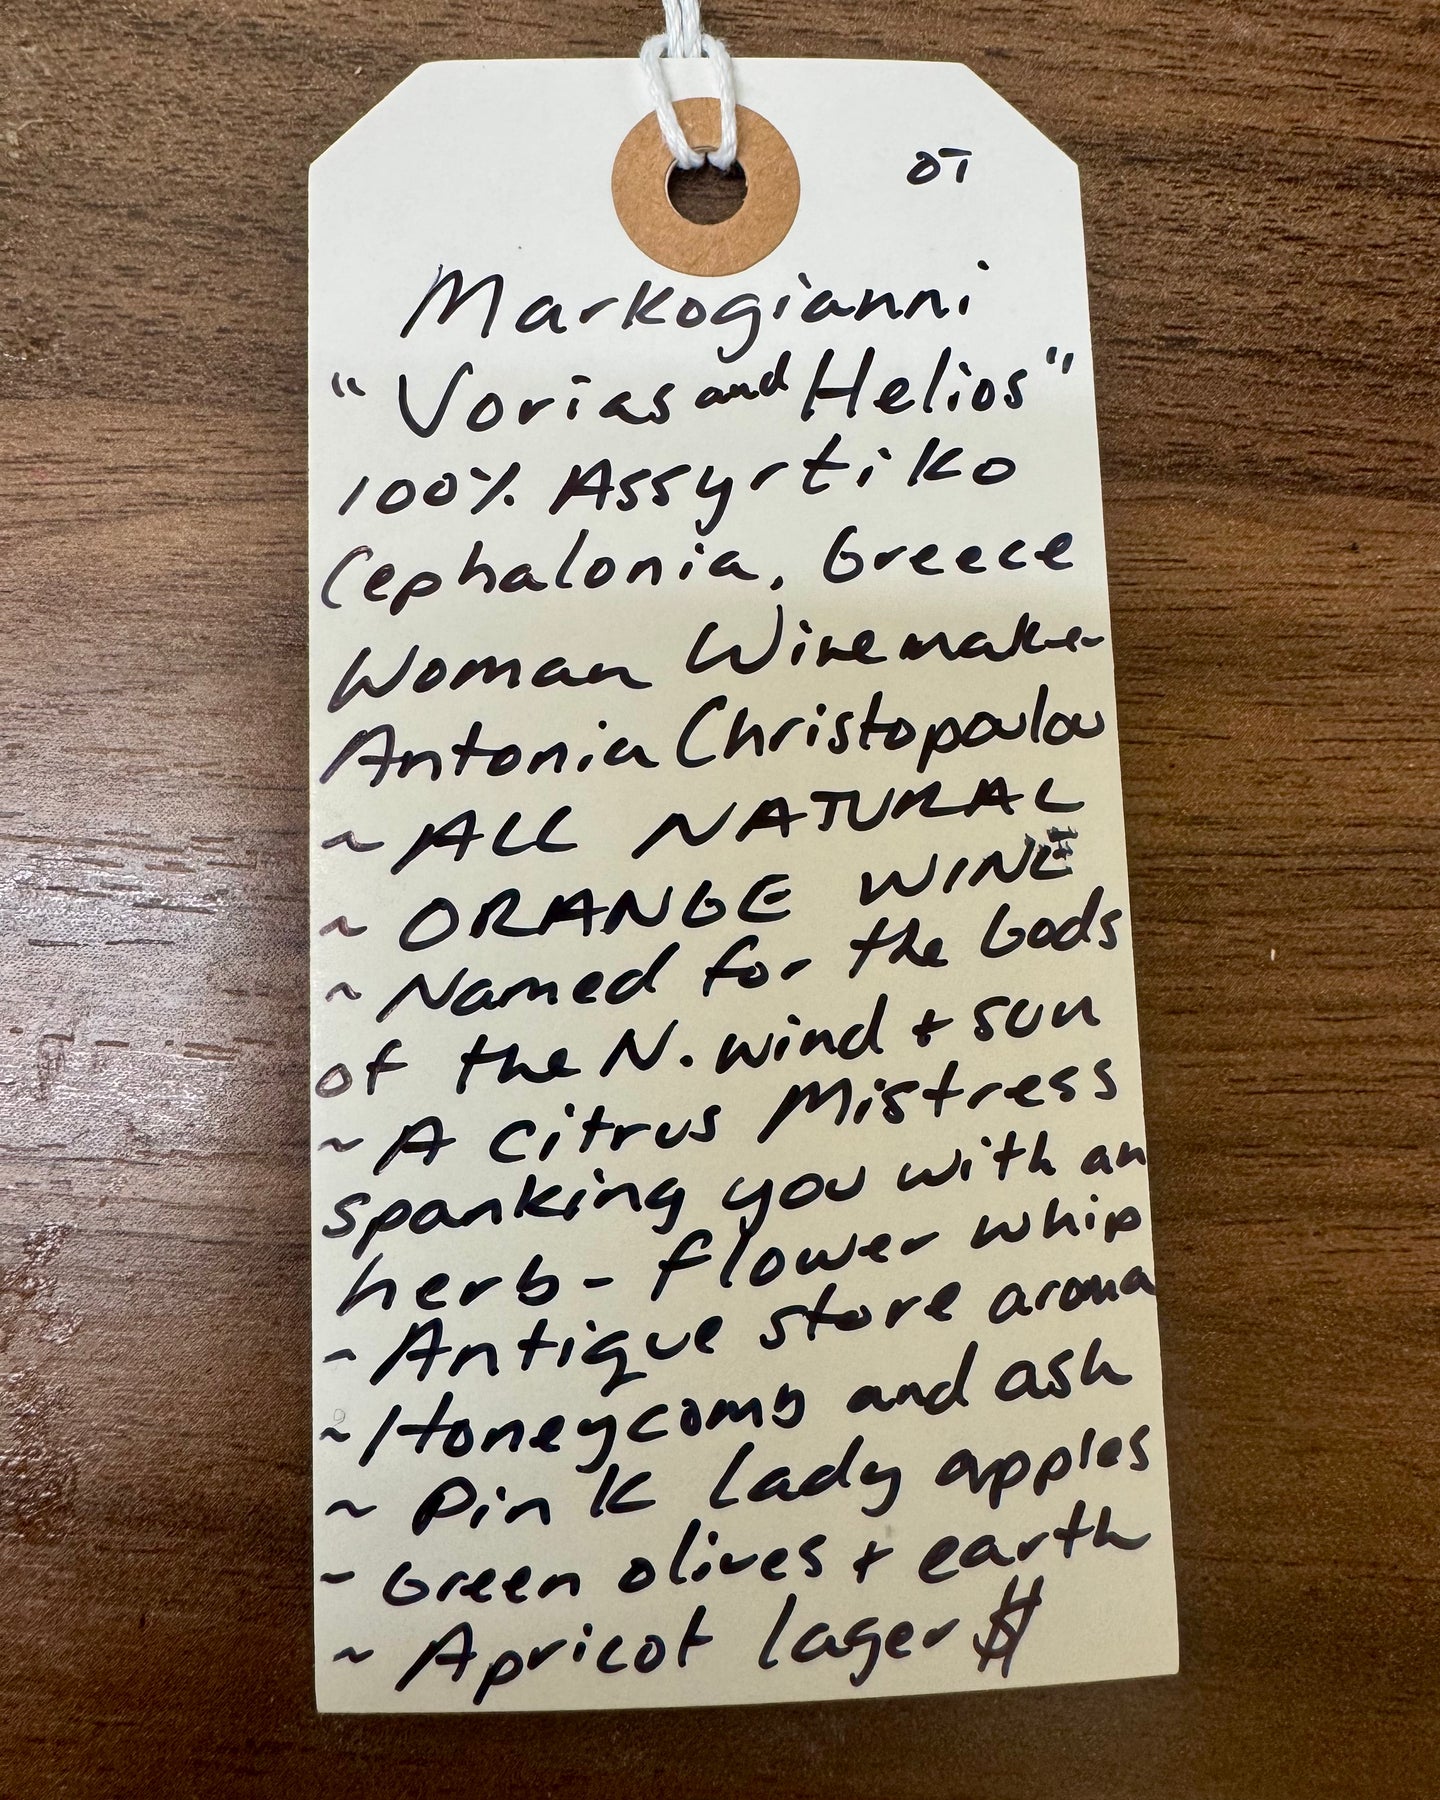 OT
Markogianni
"Vorias and Helios"
100% Assyrtiko
Cephalonia, Greece
Woman Winemaker
Antonia Christopoulou
~ ALL NATURAL
~ ORANGE WINE
~ Named for the Gods
of the N. wind + sun
~ A citrus Mistress
spanking you with an
herb-flower whip
~ Antique store aroma
~ Honeycomb and ash
~ Pink lady apples
~ Green olives + earth
~ Apricot lager $